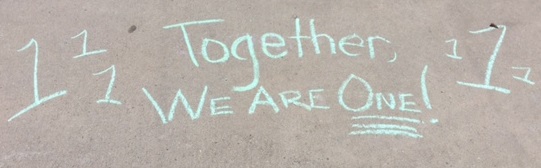 1 1 1 Together, 1 1 1
We Are One!